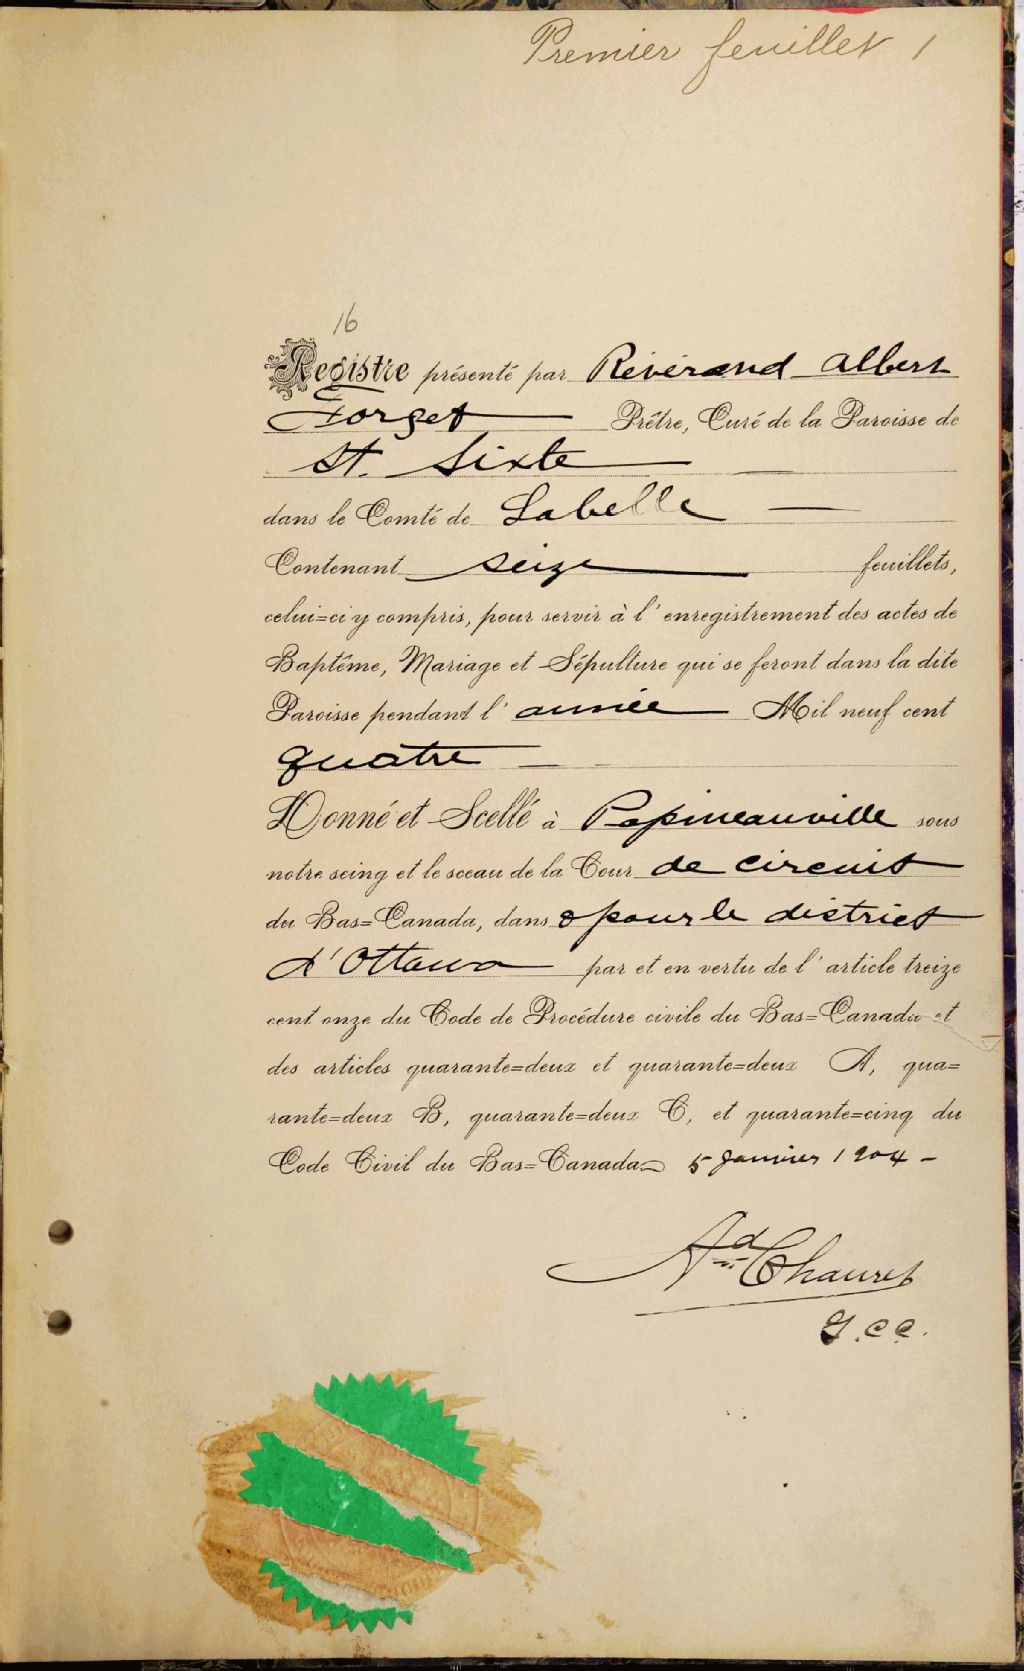 Premier feuillet 1
16
Registre présenté par Révérand Albert
Forget Prêtre, Curé de la Paroisse de
St. Sixte
dans le Comté de Labelle
Contenant seize feuillets,
celui=ci y compris, pour servir à l'enregistrement des actes de
Baptême, Mariage et Sépulture qui se feront dans la dite
Paroisse pendant l'année Mil neuf cent
quatre
Donné et Scellé à Papineauville sous
notre seing et le sceau de la Cour de circuit
du Bas=Canada, dans & pour le district
d'Ottawa par et en vertu de l'article treize
cent onze du Code de Procédure civile du Bas=Canada et
des articles quarante=deux et quarante=deux A, qua=
rante=deux B, quarante=deux C, et quarante=cinq du
Code Civil du Bas=Canada 5 Janvier 1904 -
Ad Chauret
G.C.C.